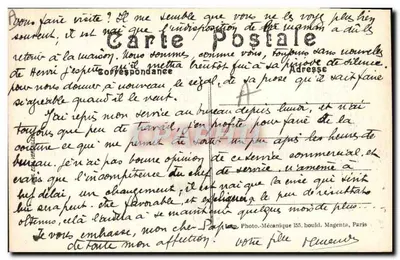 vous faire visite? Il me semble que vous ne les voyez plus bien
souvent, il est vrai que l'indisposition de maman a dû le
Carte Postale
retenir à la maison. Nous sommes, comme vous, toujours sans nouvelles
de Henri j'espère qu'il mettra bientôt fin à sa période de silence.
Correspondance Adresse
pour nous donner à nouveau le régal de sa prose qu'il sait faire
si agréable quand il le veut.
J'ai repris mon service au bureau depuis lundi, et n'ai
toujours que peu de travail, j'en profite pour faire de la
ce que me permet de un peu après les heures de
bureau. je n'ai pas bonne opinion de ce service commercial, et
crains que l'incompétence du chef de service, n'amène à
bref délai, un changement, il est vrai que la crise qui sévit
lui sera peut-être favorable, et expliquera le peu de résultats
obtenus, cela l'aidera à se maintenir quelque mois de plus
Photo-Mécanique 155, bould. Magenta, Paris
Je vous embrasse, mon cher Papa,
de toute mon affection! votre fille